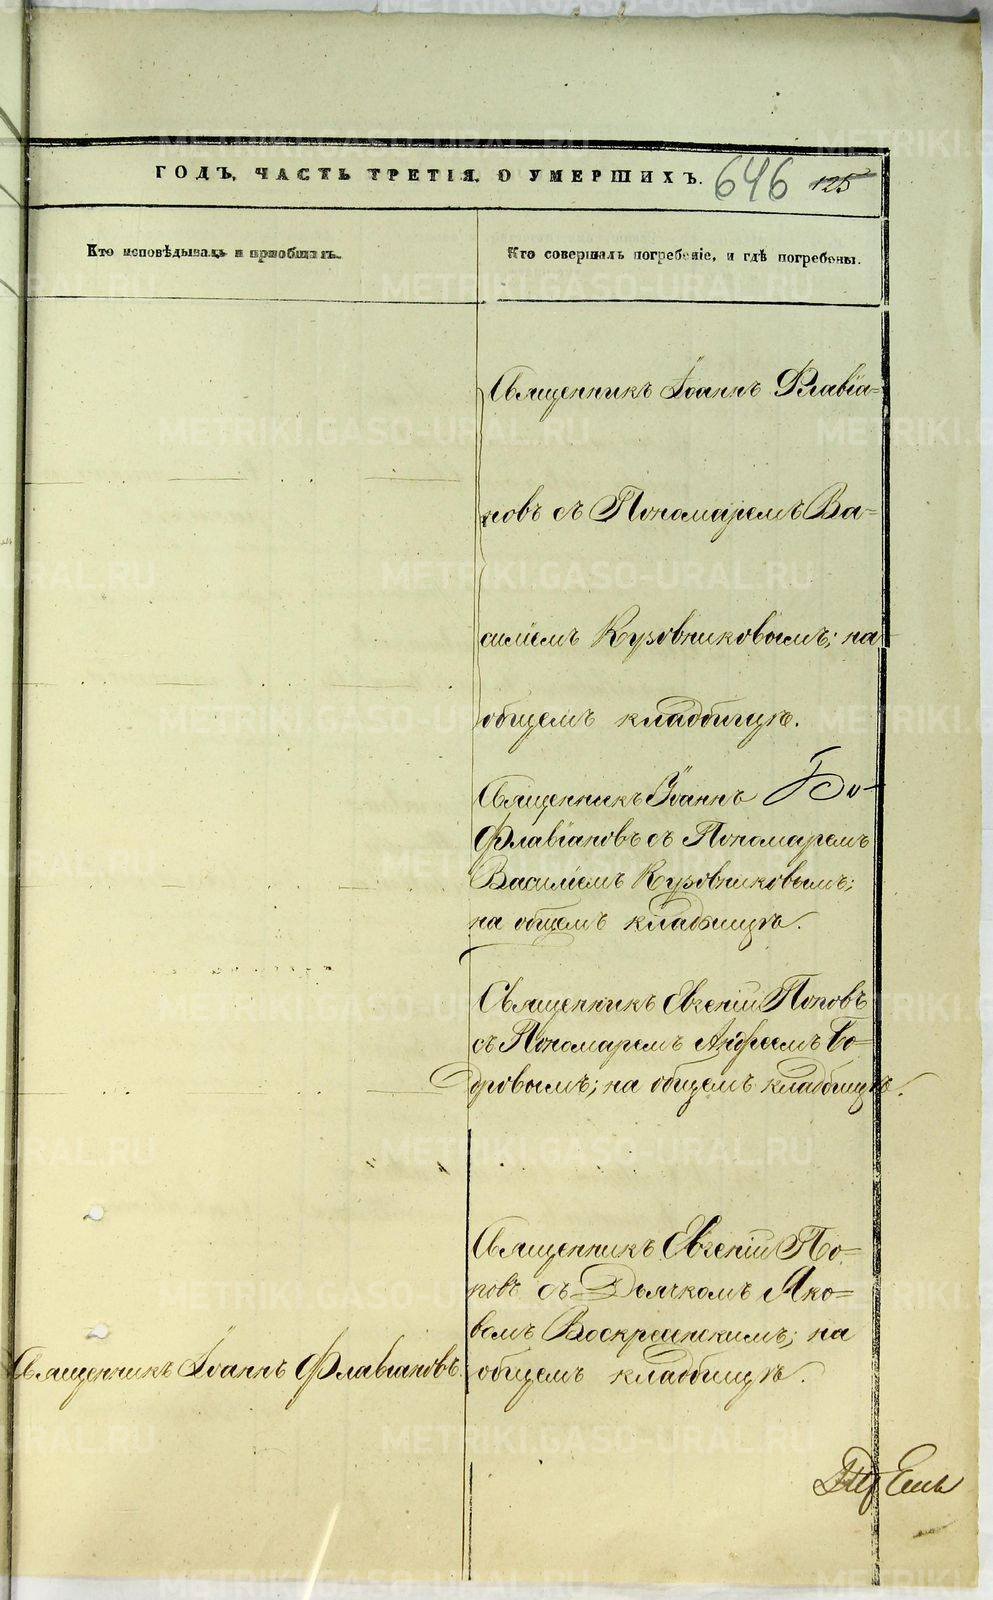 ГОДЪ, ЧАСТЬ ТРЕТІЯ, О УМЕРШИХЪ. 646 125
Кто исповѣдывалъ и пріобщалъ.
Кто совершалъ погребеніе, и гдѣ погребены.
Священникъ Іоаннъ Флавіа=
новъ съ Пономаремъ Ва=
силіемъ Кузовниковымъ; на
общемъ кладбищѣ.
Священникъ Іоаннъ
Флавіановъ съ Пономаремъ
Василіемъ Кузовниковымъ;
на общемъ кладбищѣ.
Священникъ Евгеній Поповъ
съ Пономаремъ Андреемъ Бо=
дровымъ; на общемъ кладбищѣ.
Священникъ Евгеній По=
повъ съ Дьячкомъ Яко=
вомъ Воскресенскимъ; на
Священникъ Іоаннъ Флавіановъ.
общемъ кладбищѣ.
METRIKI.GASO-URAL.RU